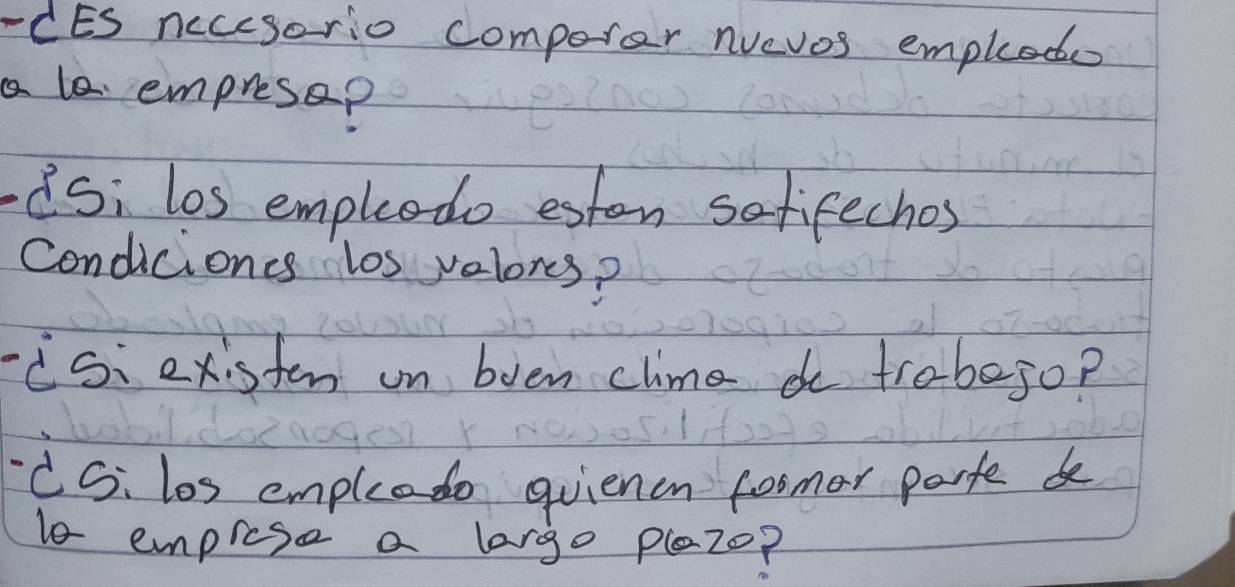 -¿ES necesario comparar nuevos empleado
a la empresa?
-¿Si los empleado estan satifechos
Condiciones los valores?
-¿Si existen un buen clima de trabajo?
-¿Si los empleado quienen foomar parte de
la empresa a largo plazo?